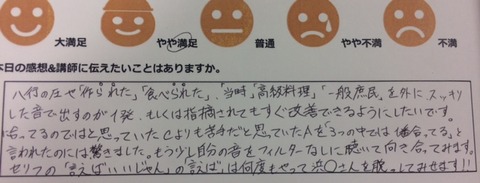 大満足 やや満足 普通 やや不満 不満
本日の感想&講師に伝えたいことはありますか。
八行の圧や「作られた」「食べられた」、「当時」「高級料理」「一般庶民」を外にスッキリ
した音で出すのが1発、もしくは指摘されてもすぐ改善できるようにしたいです。
合ってるのではと思っていたCよりも苦手だと思っていたAを「3つの中では1番合ってる」と
言われたのには驚きました。もう少し自分の音をフィルターなしに聴いて向き合ってみます。
セリフの「言えばいいじゃん」の「言えば」は何度もやって浜〇さんを脱してみせます!!